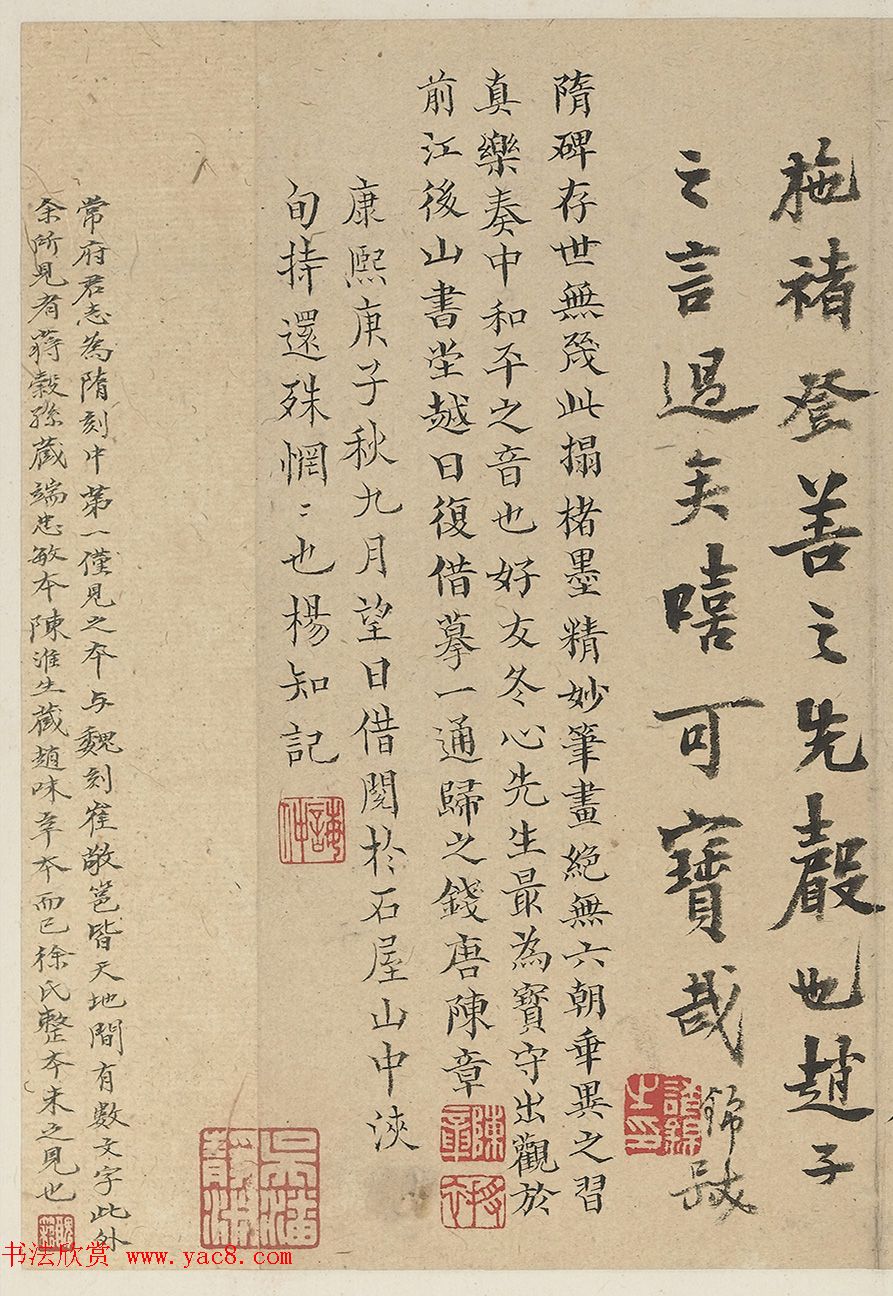 施褚登善之先聲也趙子
之言過矣嘻可寶哉
錦
隋碑存世無幾此搨楮墨精妙筆畫絕無六朝乖異之習
真樂奏中和平之音也好友冬心先生最為寶守出觀於
前江後山書堂越日復借摹一通歸之錢唐陳章
陳章
康熙庚子秋九月望日借閱於石屋山中浹
旬持還殊惘〻也楊知記
常府君志為隋刻中第一僅見之本与魏刻崔敬邕皆天地間有數文字此外
余所見有蔣穀孫藏端忠敏本陳淮生藏趙味辛本而已徐氏整本未之見也
吳潘
靜淑
书法欣赏 www.yac8.com